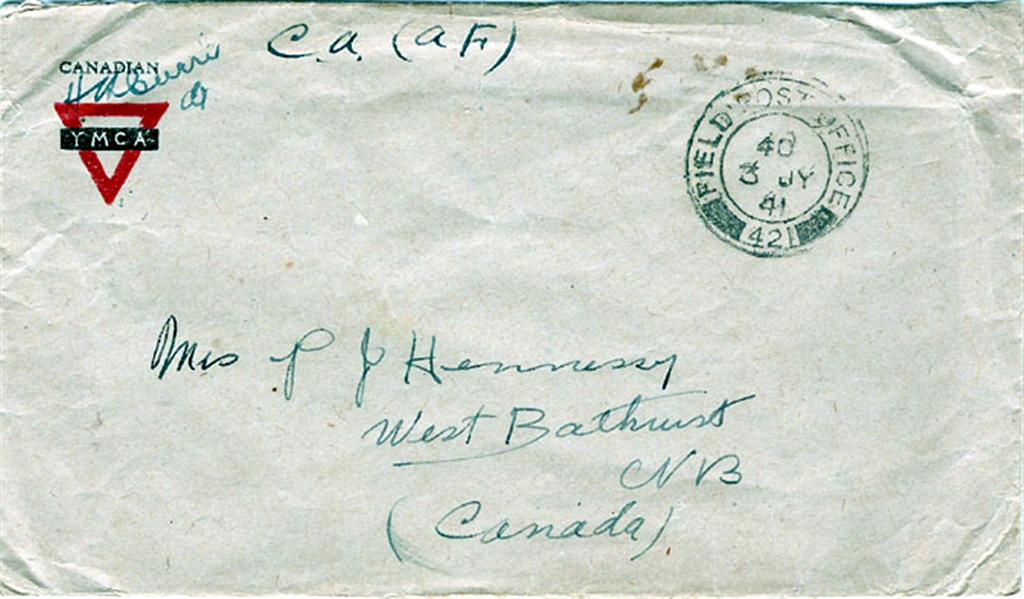 C.A. (A F)
CANADIAN
H A Currie
YMCA
FIELD POST OFFICE
40
3 JY
41
421
Mrs P J Hennessy
West Bathurst
NB
(Canada)